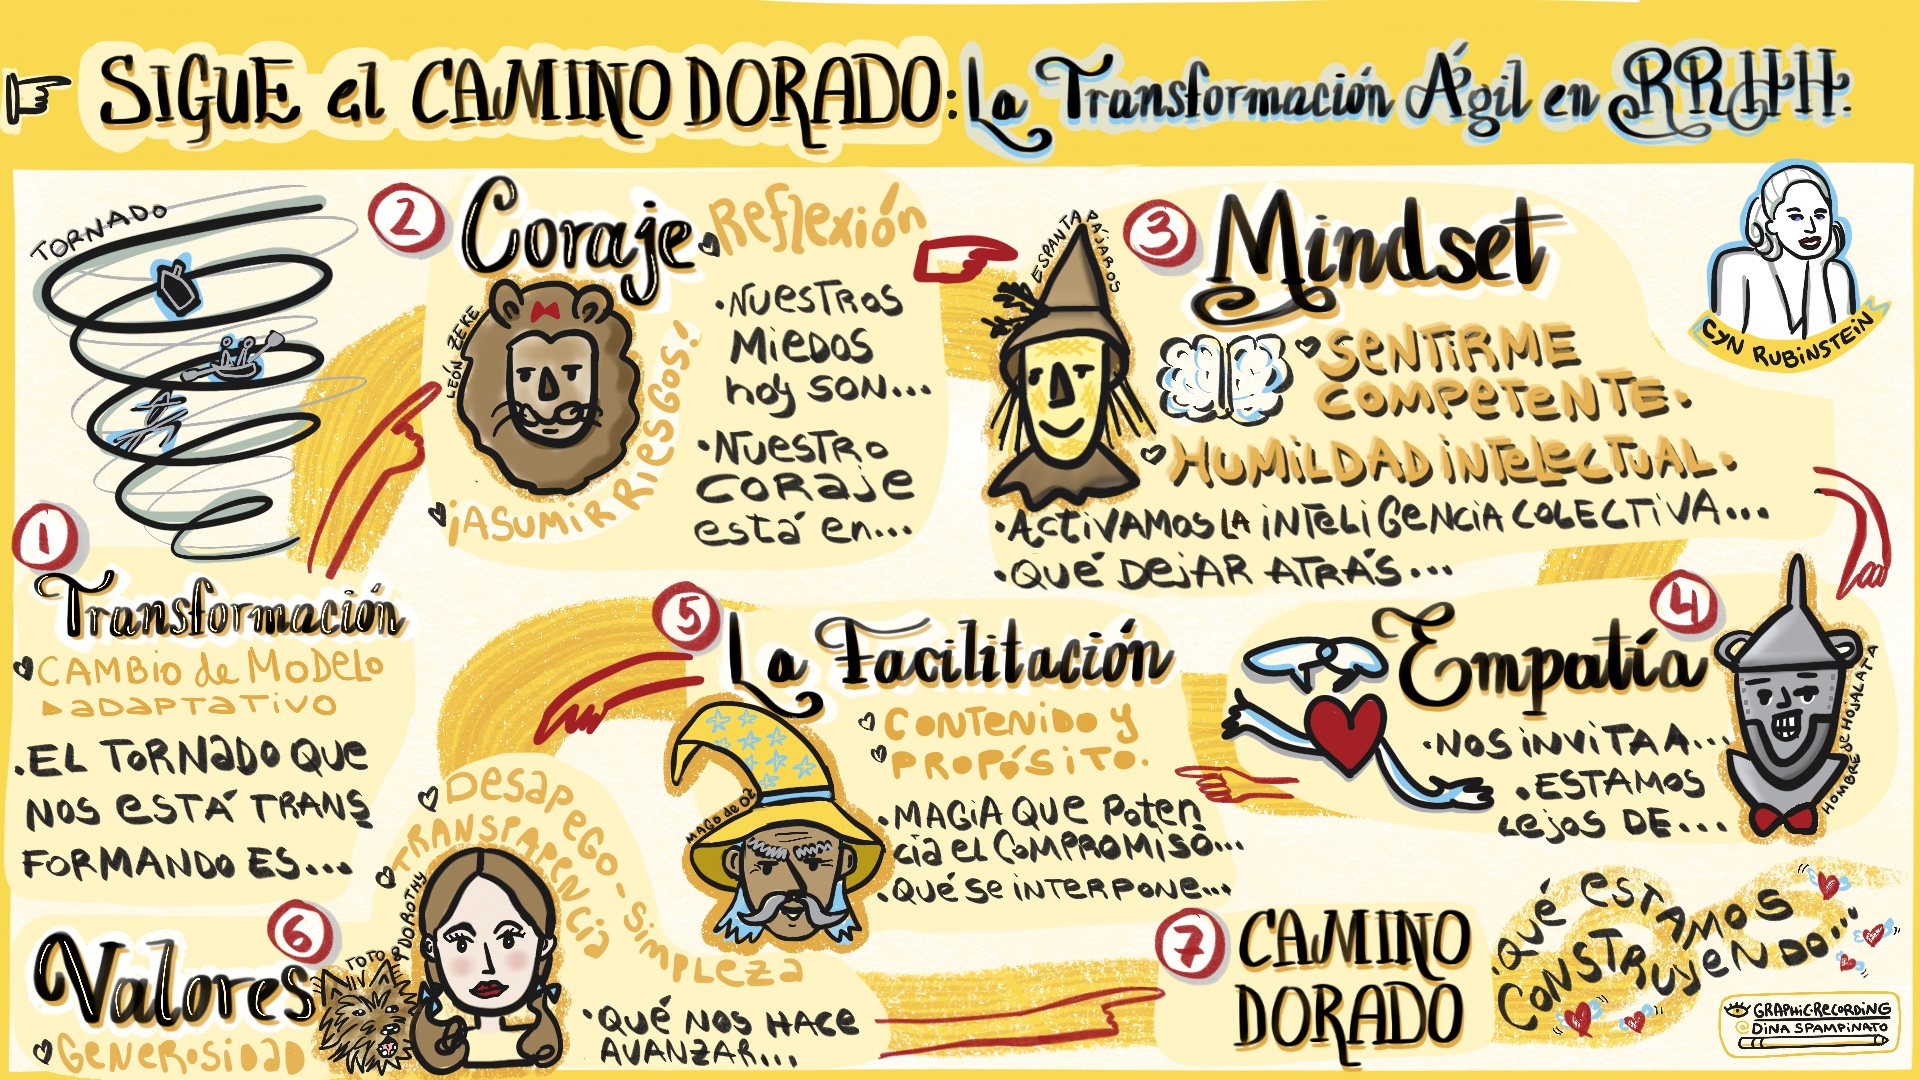 SIGUE el CAMINO DORADO: La Transformación Ágil en RRHH.
TORNADO
1
Transformación
CAMBIO de MODELO
ADAPTATIVO
.EL TORNADO QUE
NOS ESTÁ TRANS
FORMANDO ES...
2
Coraje
Reflexión
LEÓN ZEKE
¡ASUMIR RIESGOS!
.NUESTROS
MIEDOS
hoy SON...
.NUESTRO
CORAJE
está en...
3
Mindset
ESPANTAPÁJAROS
SENTIRME
COMPETENTE.
HUMILDAD INTELECTUAL.
.ACTIVAMOS LA INTELIGENCIA COLECTIVA...
.QUÉ DEJAR ATRÁS...
CYN RUBINSTEIN
4
Empatía
HOMBRE DE HOJALATA
.NOS INVITA A...
.ESTAMOS
LEJOS DE...
5
La Facilitación
MAGO de OZ
CONTENIDO Y
PROPÓSITO.
.MAGIA QUE POTEN
CIA EL COMPROMISO...
.QUÉ SE INTERPONE...
6
Valores
GENEROSIDAD
TOTO
DOROTHY
DESAPEGO - SIMPLEZA
TRANSPARENCIA
.QUÉ NOS HACE
AVANZAR...
7
CAMINO
DORADO
.QUÉ ESTAMOS
CONSTRUYENDO...
GRAPHIC RECORDING
DINA SPAMPINATO